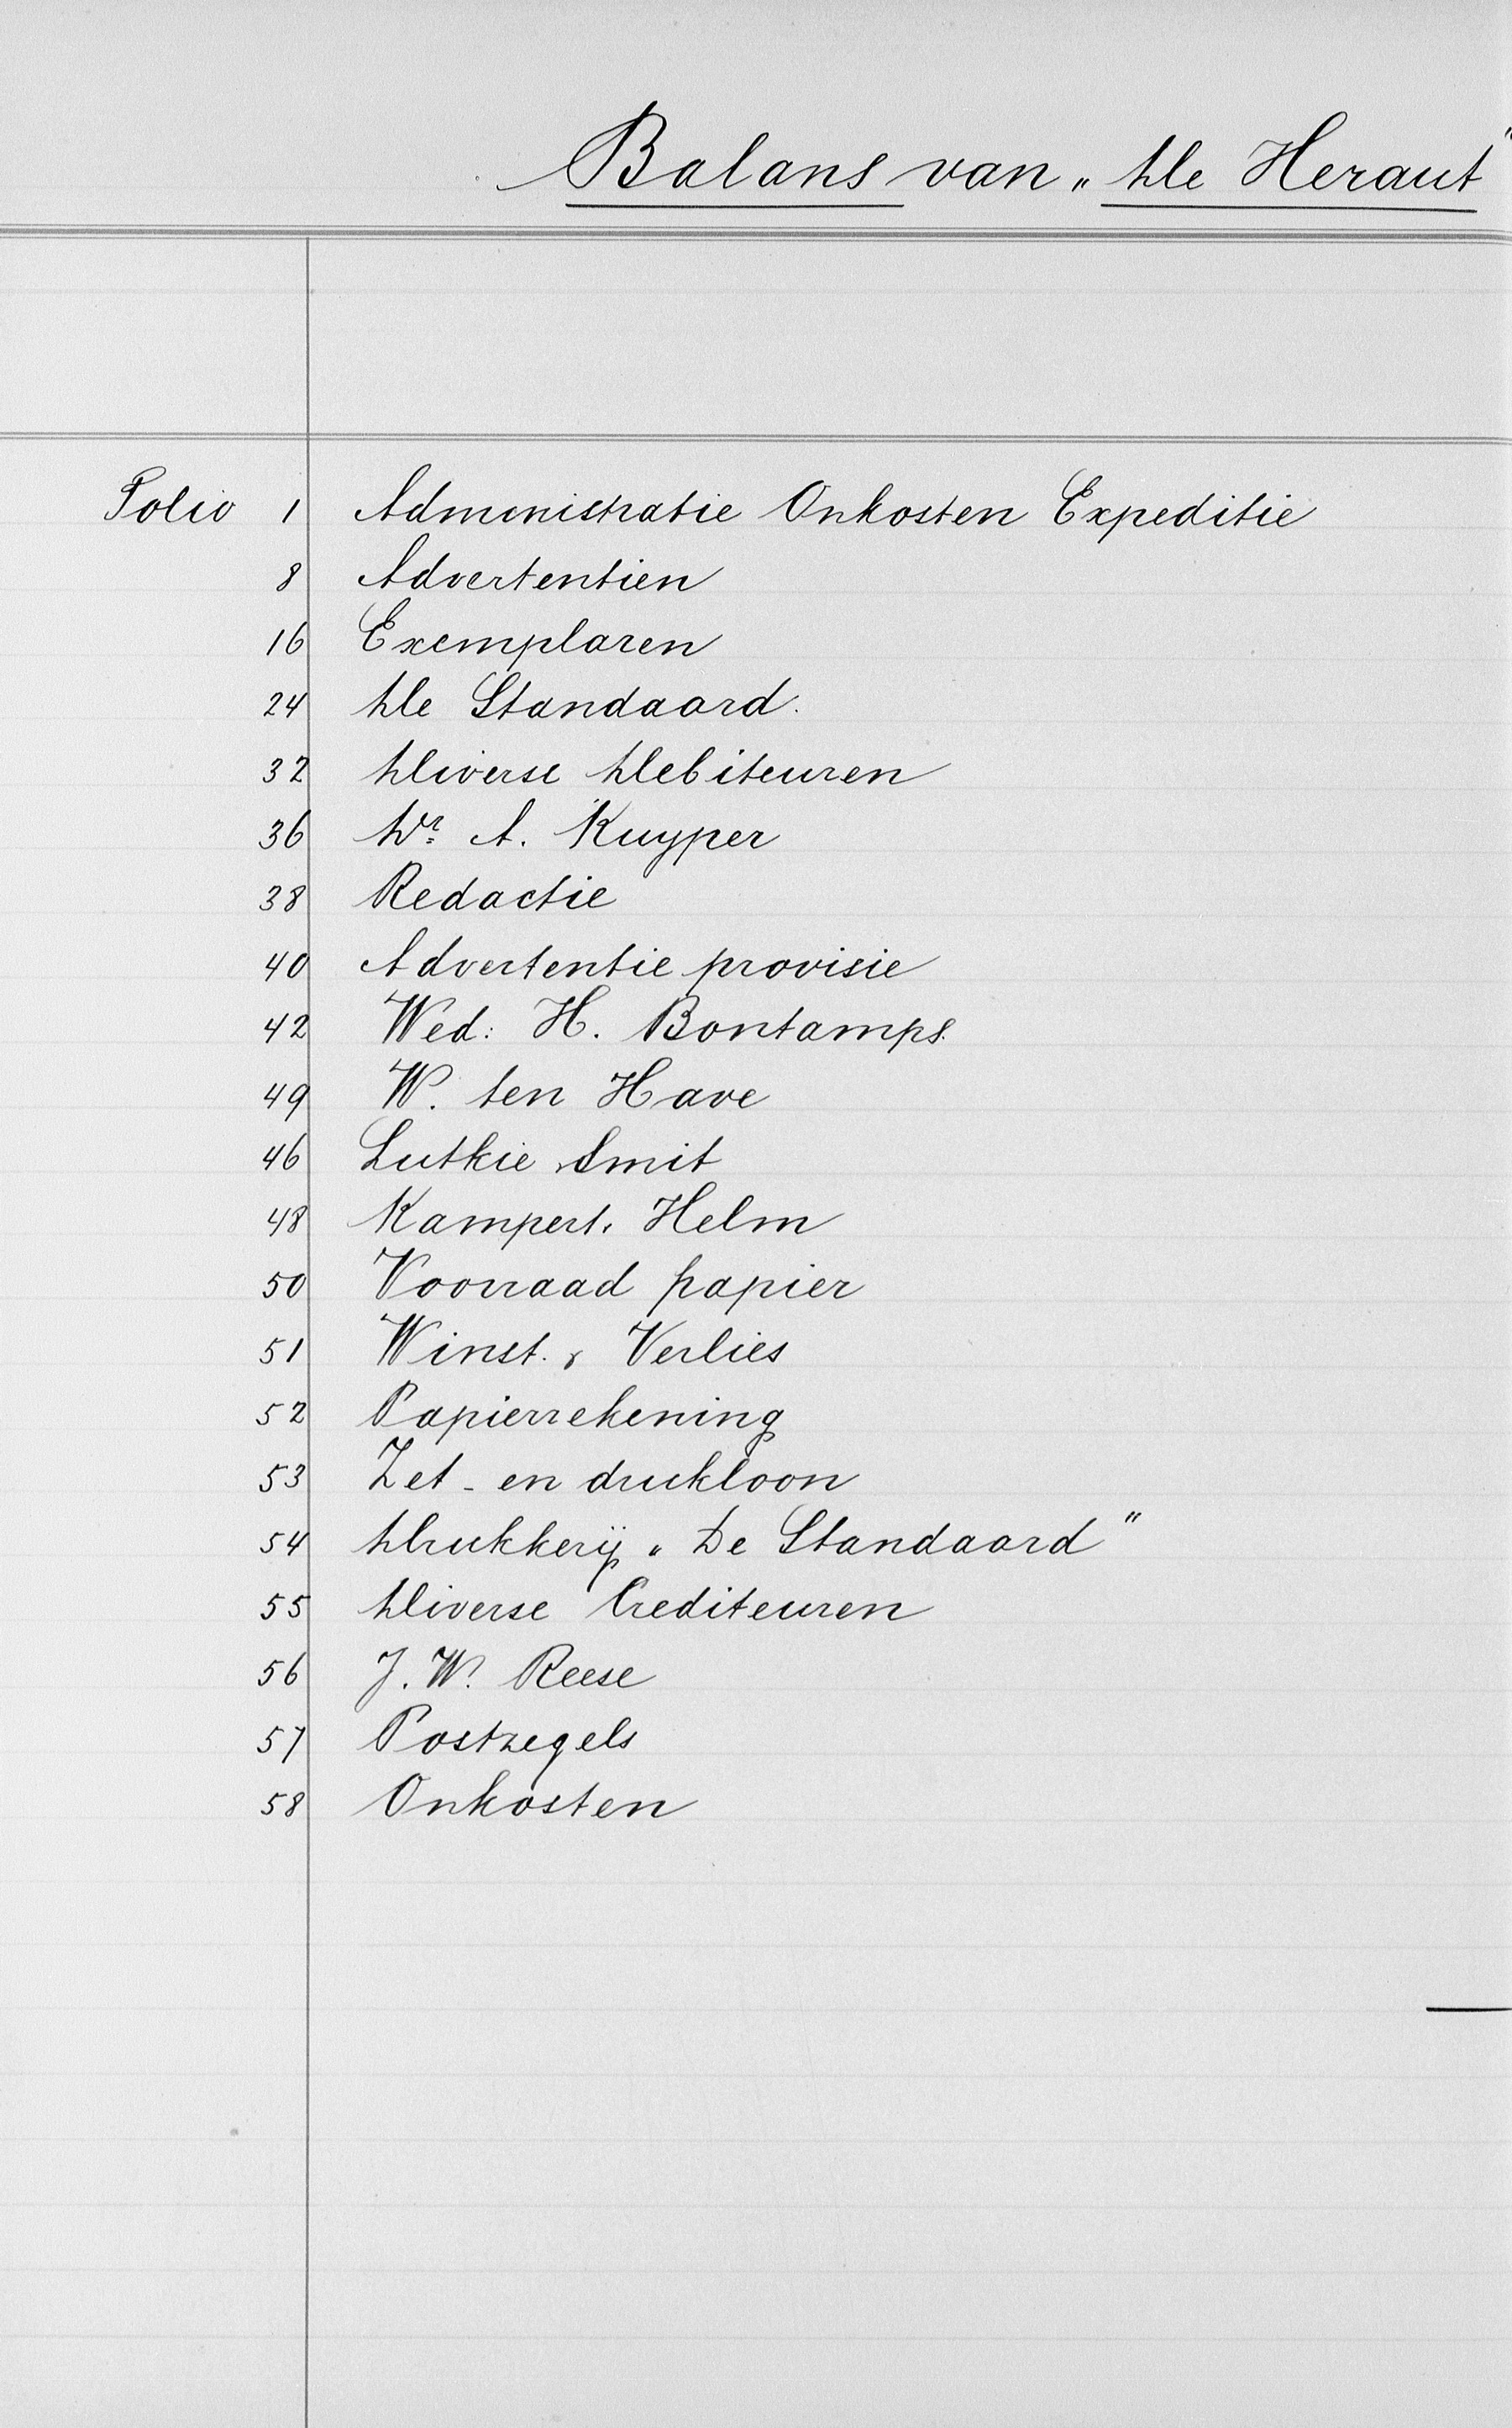 Balans van „De Heraut"
Folio 1 Administratie Onkosten Expeditie
8 Advertentien
16 Exemplaren
24 De Standaard.
32 Diverse Debiteuren
36 Dr. A. Kuyper
38 Redactie
40 Advertentie provisie
42 Wed: H. Bontamps.
49 W. ten Have
46 Lutkie & Smit
48 Kampert & Helm
50 Voorraad papier
51 Winst. & Verlies
52 Papierrekening
53 Zet- en drukloon
54 Drukkerij „De Standaard"
55 Diverse Crediteuren
56 J. W. Reese
57 Postzegels
58 Onkosten